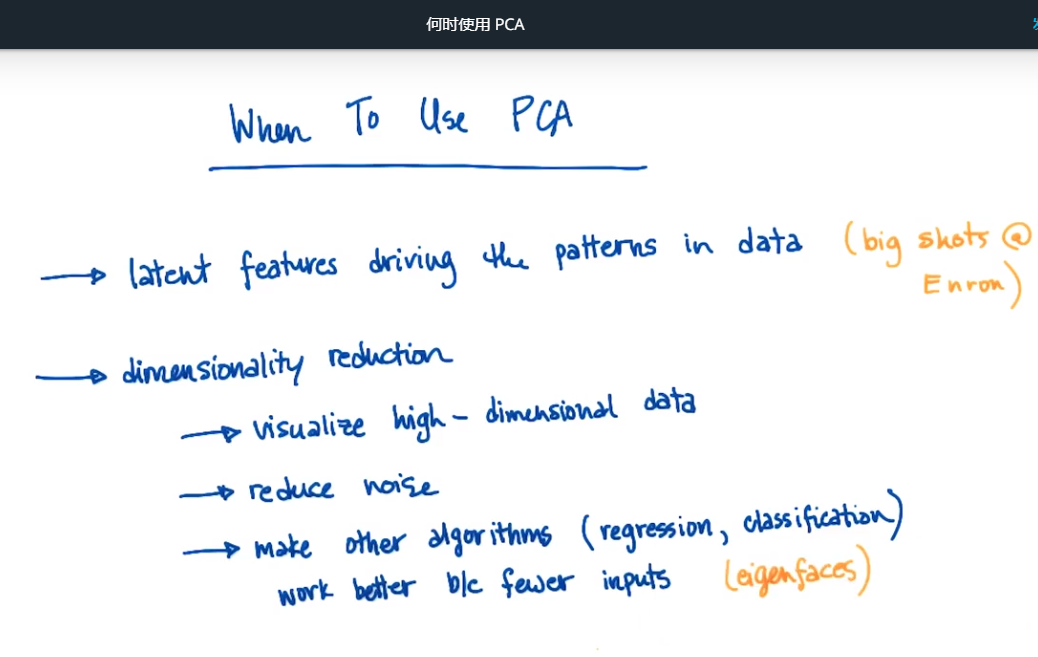 何时使用 PCA
When To Use PCA
latent features driving the patterns in data (big shots @
Enron)
dimensionality reduction
visualize high-dimensional data
reduce noise
make other algorithms (regression, classification)
work better b/c fewer inputs (eigenfaces)